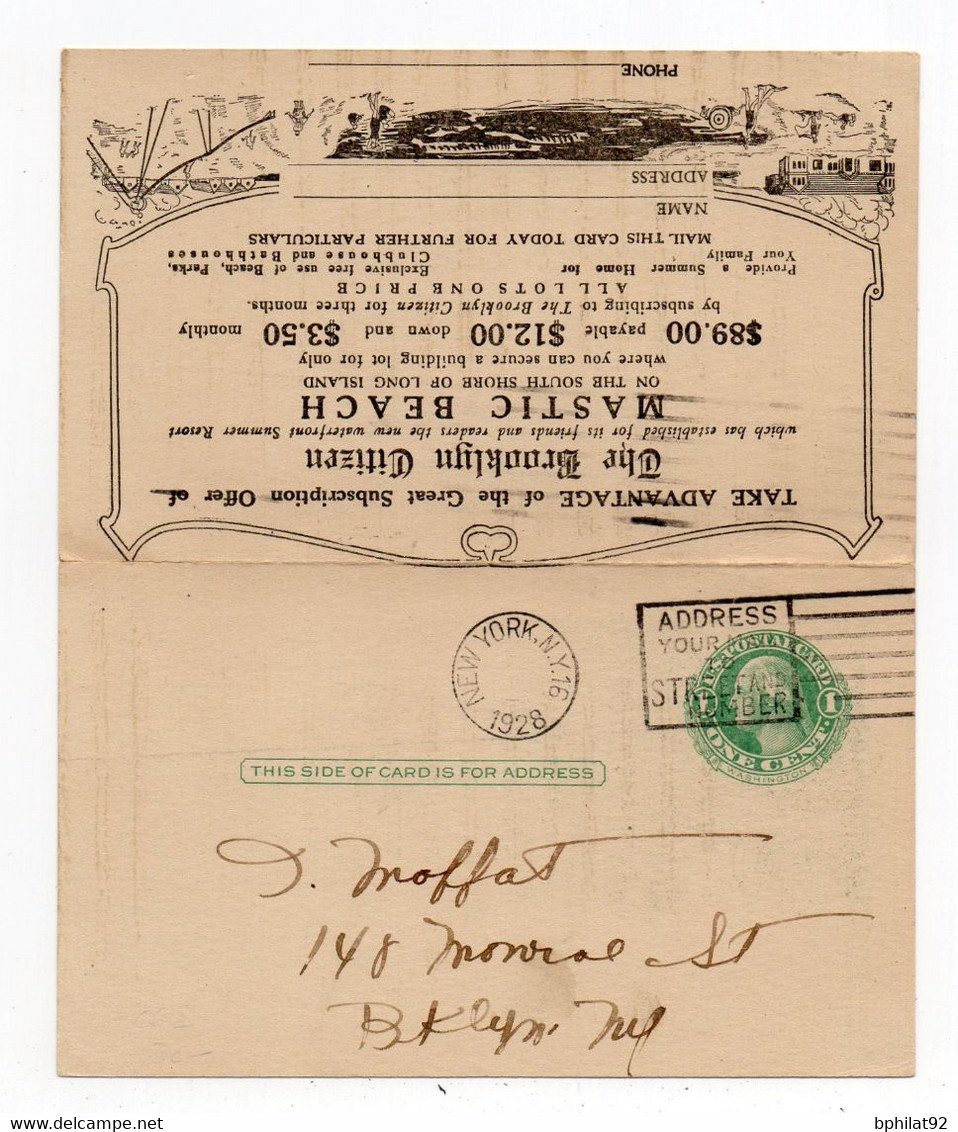 TAKE ADVANTAGE of the Great Subscription Offer of
The Brooklyn Citizen
which has established for its friends and readers the new waterfront Summer Resort
MASTIC BEACH
ON THE SOUTH SHORE OF LONG ISLAND
where you can secure a building lot for only
$89.00 payable $12.00 down and $3.50 monthly
by subscribing to The Brooklyn Citizen for three months.
ALL LOTS ONE PRICE
Provide a Summer Home for
Your Family
Exclusive free use of Beach, Parks,
Clubhouse and Bathhouses
MAIL THIS CARD TODAY FOR FURTHER PARTICULARS
NAME
ADDRESS
PHONE
NEW YORK, N.Y. 16
1928
ADDRESS
YOUR
STREET AND
NUMBER
U.S. POSTAL CARD
1 1
ONE CENT
WASHINGTON
THIS SIDE OF CARD IS FOR ADDRESS
Moffat
148 Monroe St
Bklyn. NY
delcampe.net
bphilat92